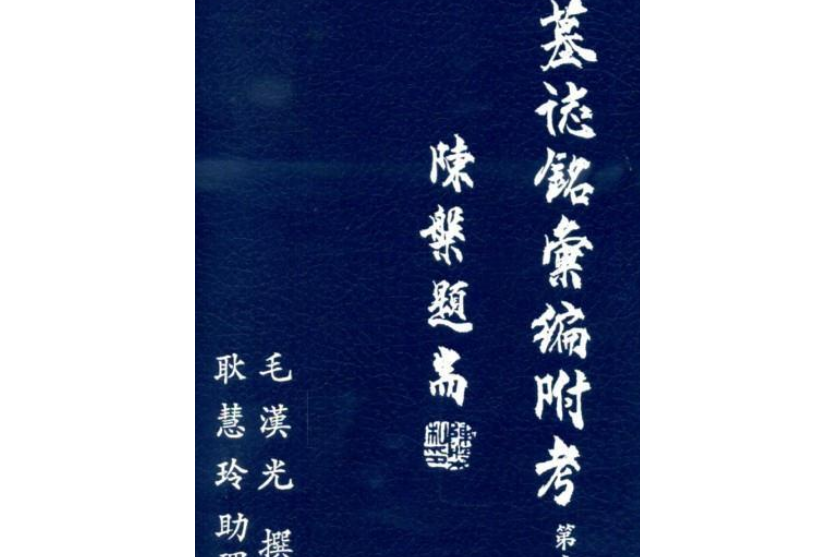 墓誌銘彙編附考 第
陳槃題耑
毛漢光 撰
耿慧玲助